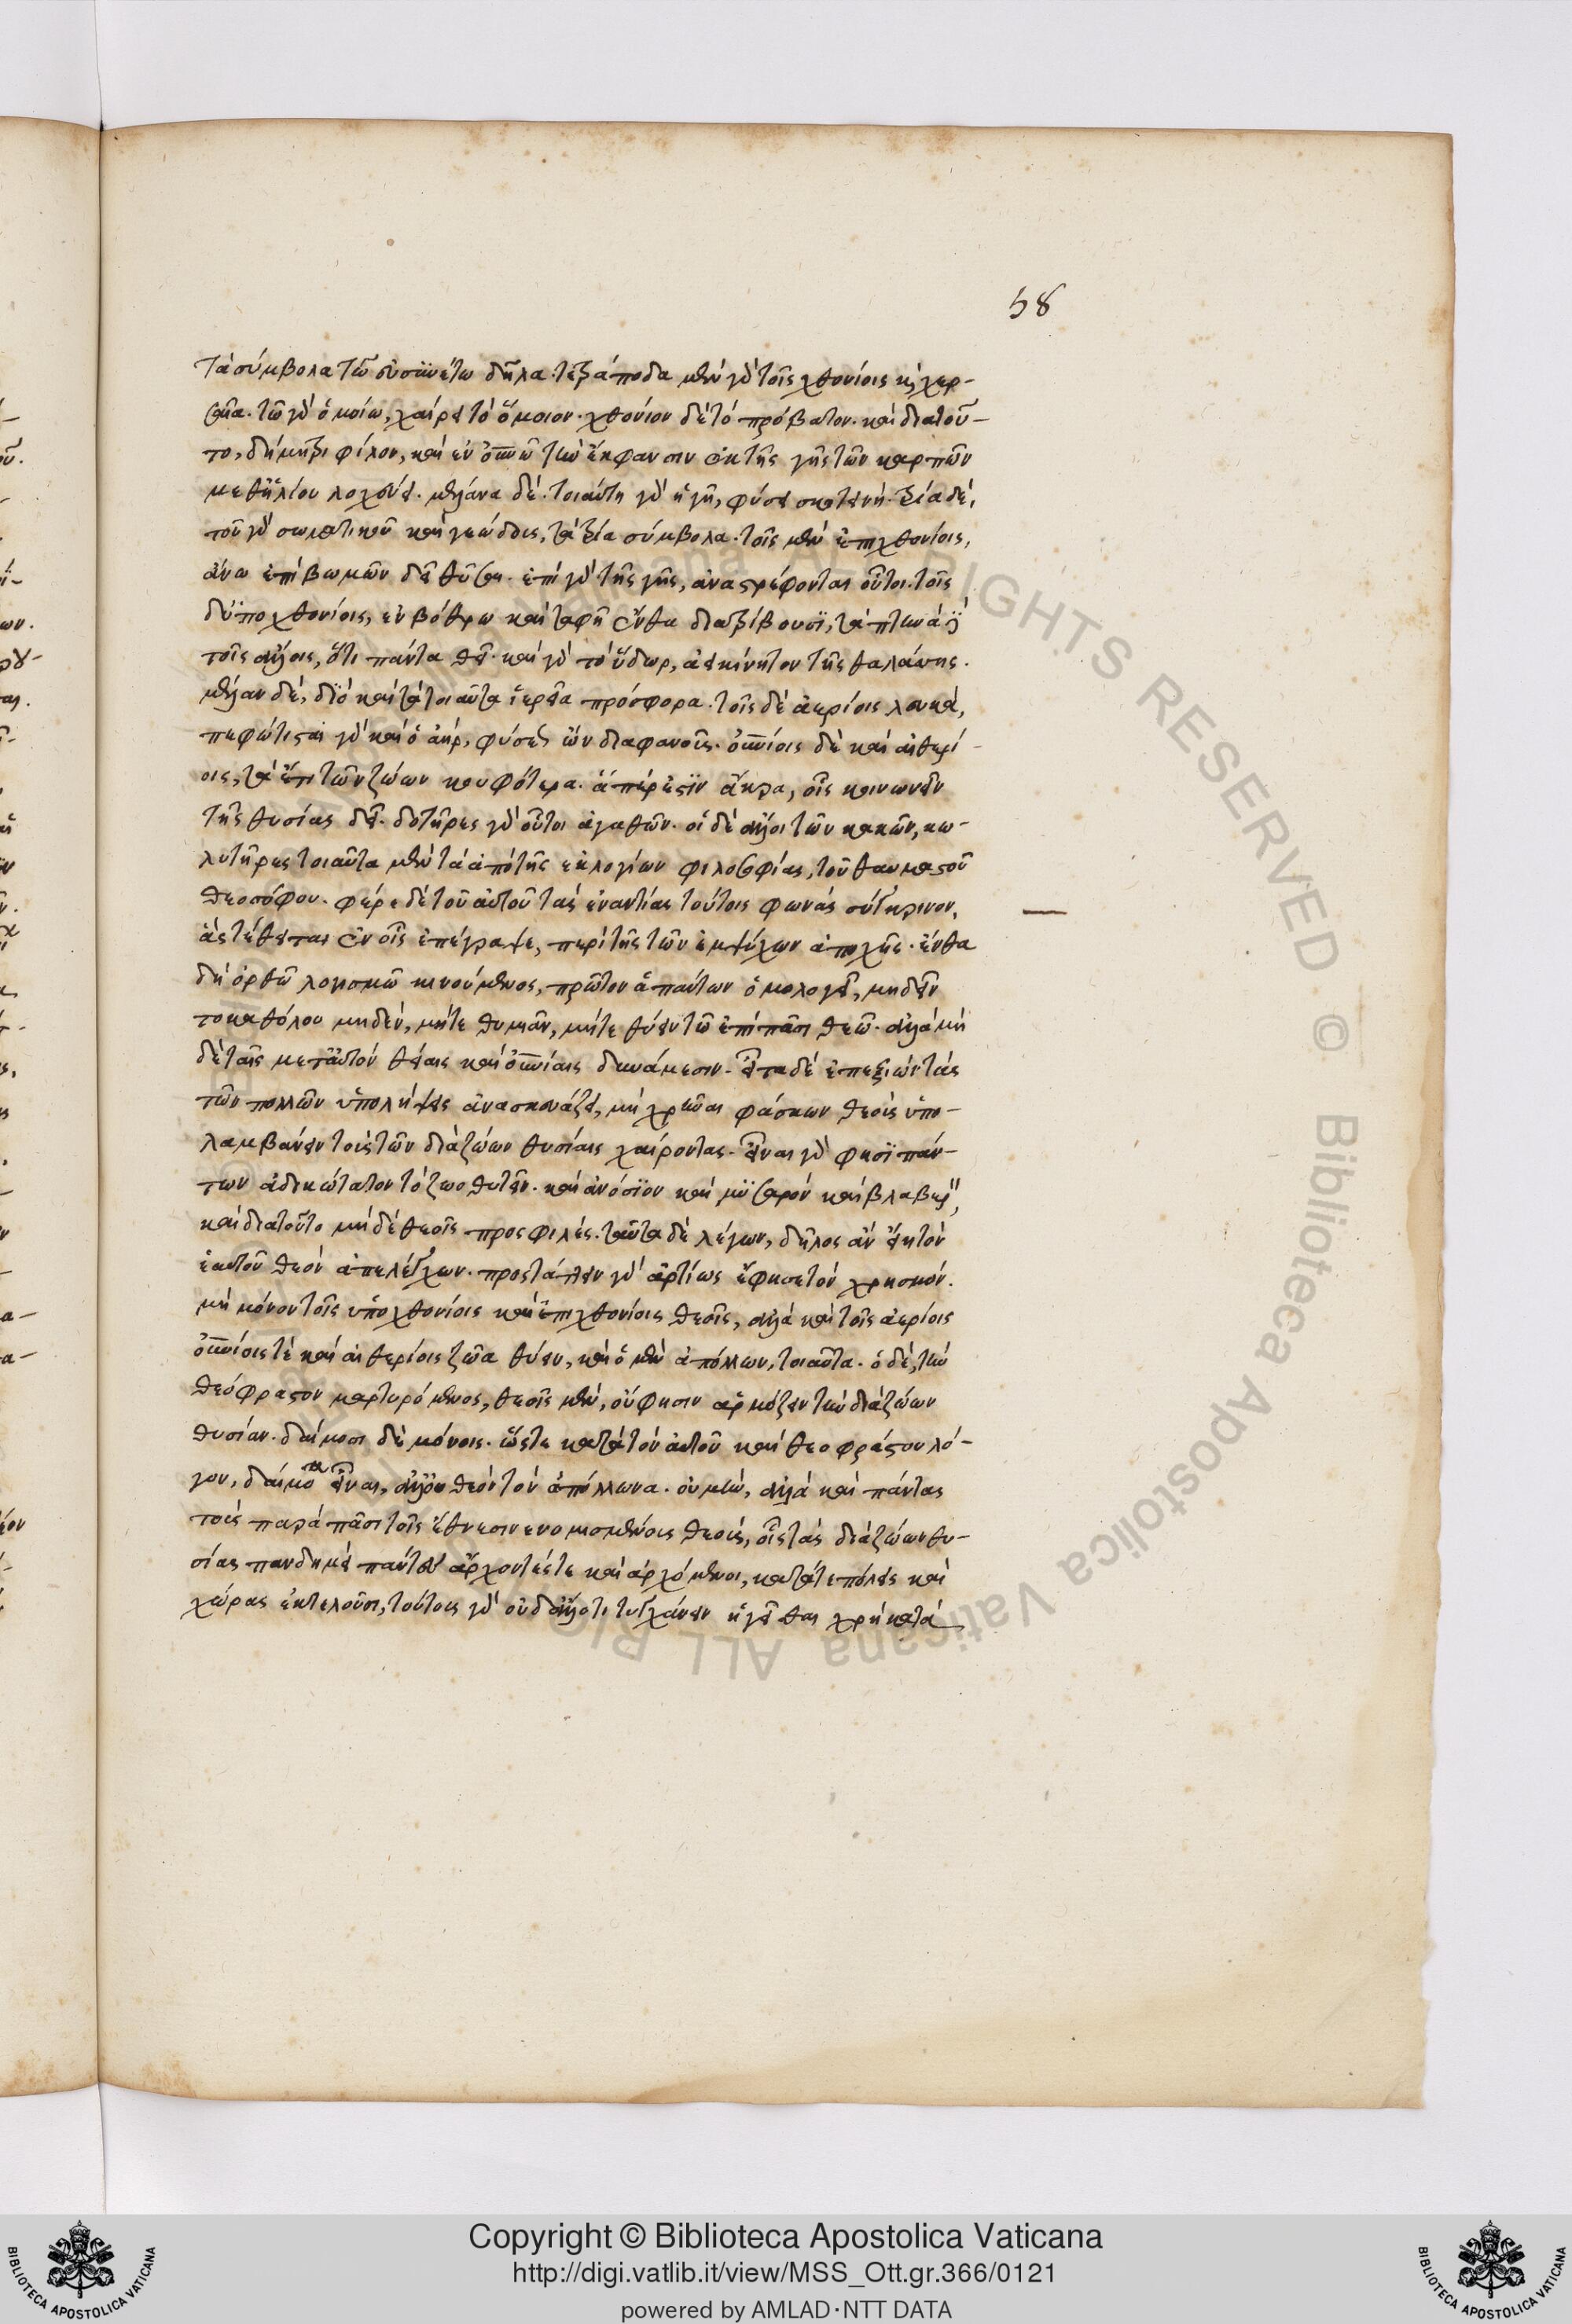 58
τὰ σύμβολα τῶ εὐσυνέτω δῆλα. τετράποδα μὲν γὰρ τοῖς χθονίοις κ(αὶ) χερ-
σαῖα. τῶ γὰρ ὁμοίω, χαίρει τὸ ὅμοιον. χθόνιον δὲ τὸ πρόβατον. καὶ διατοῦ-
το, δήμητρι φίλον, καὶ ἐν οὐ(ρα)νῶ τὴν ἔκφανσιν ἐκ τῆς γῆς τῶν καρπῶν
μεθ᾽ ἡλίου λοχεύει. μέλανα δέ. τοιαύτη γὰρ ἡ γῆ, φύσει σκοτεινή. τρία δέ,
τοῦ γὰρ σωματικοῦ καὶ γεώδους, τὰ τρία σύμβολα. τοῖς μὲν ἐπιχθονίοις,
ἄνω ἐπὶ βωμῶν δεῖ θῦσαι. ἐπὶ γὰρ τῆς γῆς, ἀναστρέφονται οὗτοι. τοῖς
δ᾽ ὑποχθονίοις, ἐν βόθρω καὶ ταφῆ ἔνθα διατρίβουσϊ, τὰ πτηνὰ δὲ
τοῖς ἄλλοις, ὅτι πάντα θεῖ. καὶ γὰρ τὸ ὕδωρ, ἀεικίνητον τῆς θαλάττης.
μέλαν δέ, διὸ καὶ τὰ τοιαῦτα ἱερεῖα πρόσφορα. τοῖς δὲ ἀερίοις λευκά,
πεφώτισται γὰρ καὶ ὁ ἀήρ, φύσεως ὢν διαφανοῦς. οὐ(ρα)νίοις δὲ καὶ αἰθερί-
οις, τὰ ἔτι τῶν ζώων κουφότερα. ἅπέρ ἐστϊν ἄκρα, οἷς κοινωνεῖν
τῆς θυσίας δεῖ. δοτῆρες γὰρ οὗτοι ἀγαθῶν. οἱ δὲ ἄλλοι τῶν κακῶν, κω-
λυτῆρες τοιαῦτα μὲν τὰ ἀπὸ τῆς ἐκ λογίων φιλοσοφίας, τοῦ θαυμαστοῦ
θεοσόφου. φέρε δὲ τοῦ αὐτοῦ τὰς ἐναντίας τούτοις φωνὰς σύγκρινον,
ἃς τέθειται ἐν οἷς ἐπέγραψε, περὶ τῆς τῶν ἐμψύχων ἀποχῆς. ἔνθα
δὴ ὀρθῶ λογισμῶ κινούμενος, πρῶτον ἁπάντων ὁμολογεῖ, μηδεῖν
τοκαθόλου μηδέν, μήτε θυμιᾶν, μήτε θύειν τῶ ἐπὶ πᾶσι θεῶ. ἀλλὰ μὴ
δὲ ταῖς μετ᾽ αὐτὸν θείαις καὶ οὐ(ρα)νίαις δυνάμεσιν. εἶτα δὲ ἐπεξιὼν τὰς
τῶν πολλῶν ὑπολήψεις ἀνασκευάζει, μὴ χρῆναι φάσκων θεοὺς ὑπο-
λαμβάνειν τοὺς τῶν διὰ ζώων θυσίαις χαίροντας. εἶναι γὰρ φησϊ πάν-
των ἀδικώτατον τὸ ζωοθυτεῖν. καὶ ἀνόσϊον καὶ μϋσαρὸν καὶ βλαβερόν,
καὶ διατοῦτο μὴ δὲ θεοῖς προσφιλές. ταῦτα δὲ λέγων, δῆλος ἂν εἴη τὸν
ἑαυτοῦ θεὸν ἀπελέγχων. προστάττειν γὰρ ἀρτίως ἔφησε τὸν χρησμόν.
μὴ μόνον τοῖς ὑποχθονίοις καὶ ἐπιχθονίοις θεοῖς, ἀλλὰ καὶ τοῖς ἀερίοις
οὐ(ρα)νίοις τὲ καὶ αἰθερίοις ζῶα θύειν, καὶ ὁ μὲν ἀπόλλων, τοιαῦτα. ὁ δὲ, τὸν
θεόφραστον μαρτυρόμενος, θεοῖς μὲν, οὔφησιν ἁρμόζειν τὴν διὰ ζώων
θυσίαν. δαίμοσι δὲ μόνοις. ὥστε κατὰ τὸν αὐτοῦ καὶ θεοφράστου λό-
γον, δαίμονα εἶναι, ἀλλ᾽ οὐ θεὸν τὸν ἀπόλλωνα. οὐ μὴν, ἀλλὰ καὶ πάντας
τοὺς παρὰ πᾶσι τοῖς ἔθνεσιν ενομισμένους θεούς, οἷς τὰς διὰ ζώων θυ-
σίας πανδημεὶ πάντες ἄρχοντές τε καὶ ἀρχόμενοι, κατὰ τε πόλεις καὶ
χώρας ἐκτελοῦσι, τούτοις γὰρ οὐδ᾽ ἄλλοτι τυγχάνειν ἡγεῖσθαι χρὴ κατὰ
Copyright © Biblioteca Apostolica Vaticana
http://digi.vatlib.it/view/MSS_Ott.gr.366/0121
powered by AMLAD·NTT DATA